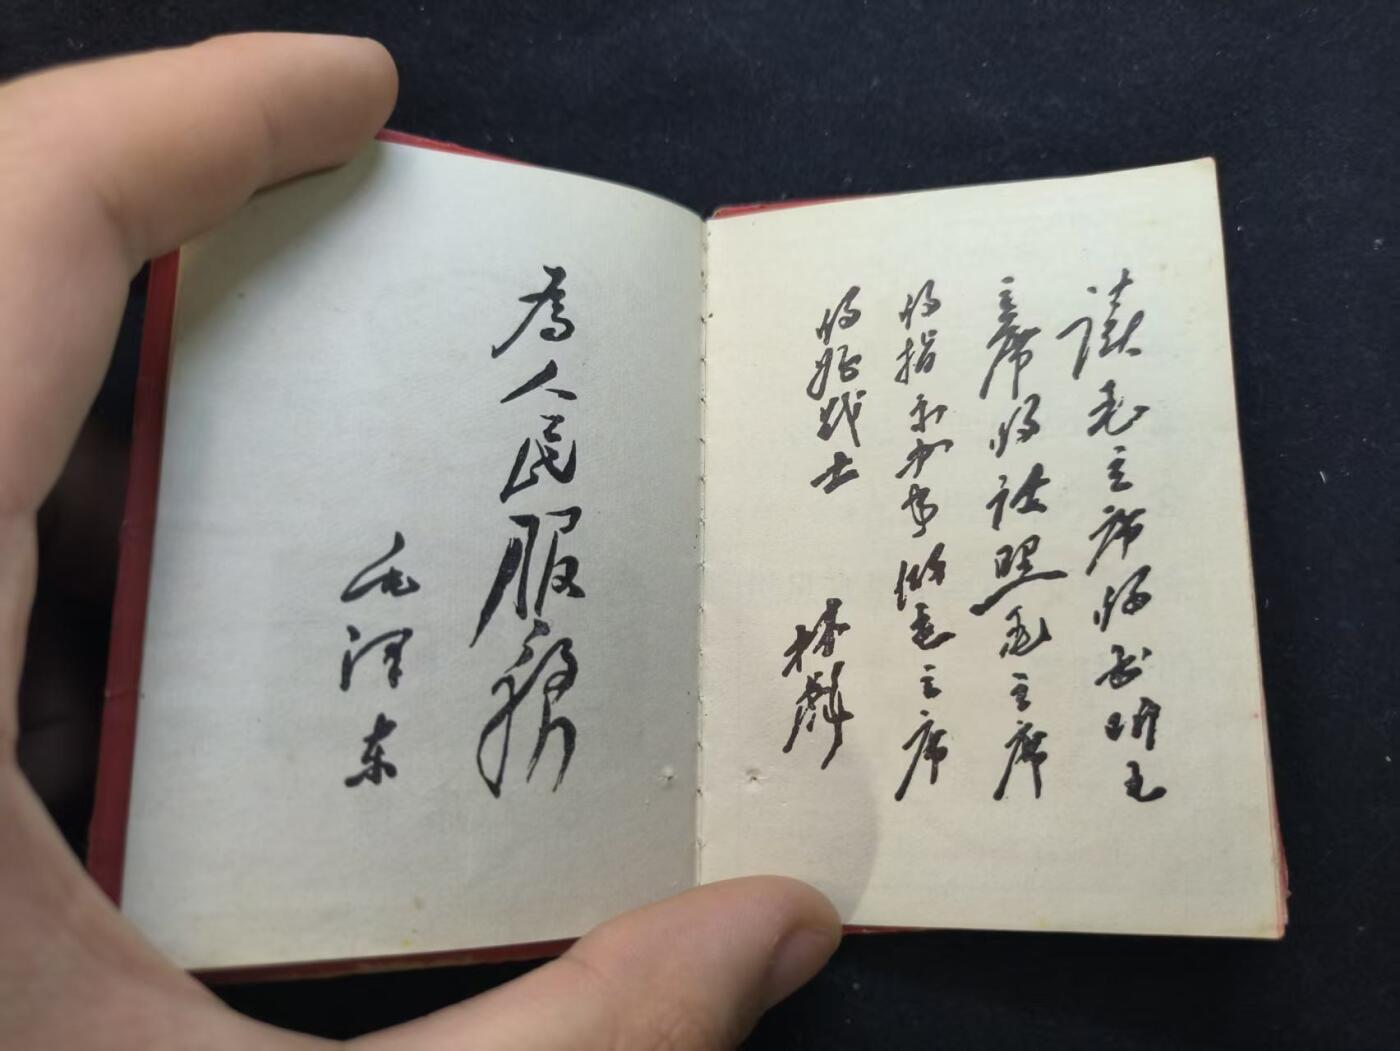 为人民服务
毛泽东
读毛主席的书听毛
主席的话照毛主席
的指示办事做毛主席
的好战士
林彪